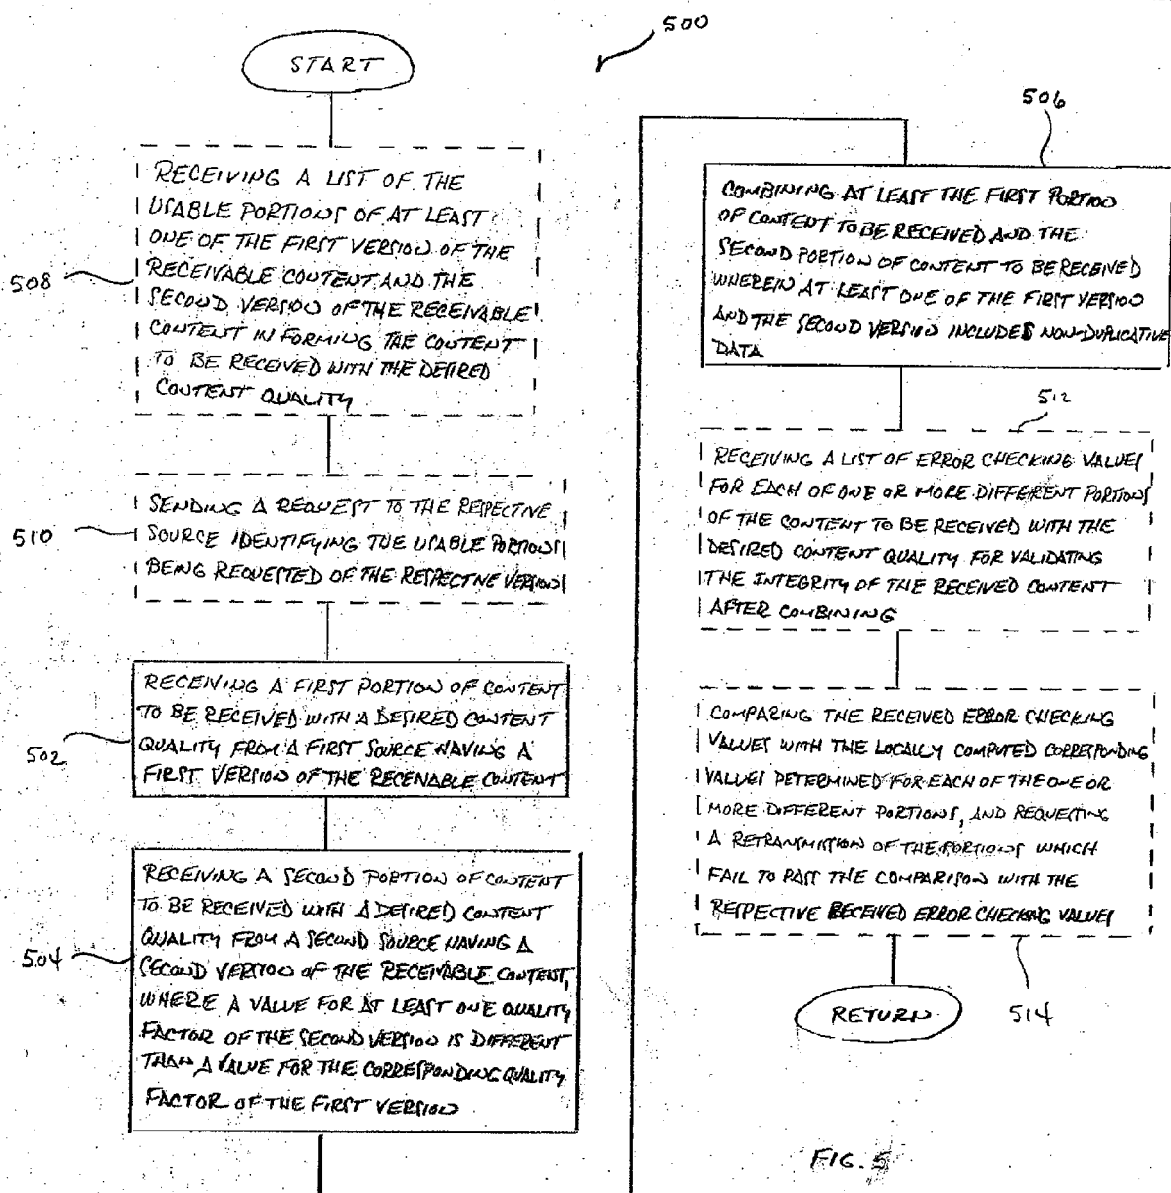 500
START
508
RECEIVING A LIST OF THE
USABLE PORTIONS OF AT LEAST
ONE OF THE FIRST VERSION OF THE
RECEIVABLE CONTENT AND THE
SECOND VERSION OF THE RECEIVABLE
CONTENT IN FORMING THE CONTENT
TO BE RECEIVED WITH THE DESIRED
CONTENT QUALITY
510
SENDING A REQUEST TO THE RESPECTIVE
SOURCE IDENTIFYING THE USABLE PORTIONS
BEING REQUESTED OF THE RESPECTIVE VERSION
502
RECEIVING A FIRST PORTION OF CONTENT
TO BE RECEIVED WITH A DESIRED CONTENT
QUALITY FROM A FIRST SOURCE HAVING A
FIRST VERSION OF THE RECEIVABLE CONTENT
504
RECEIVING A SECOND PORTION OF CONTENT
TO BE RECEIVED WITH A DESIRED CONTENT
QUALITY FROM A SECOND SOURCE HAVING A
SECOND VERSION OF THE RECEIVABLE CONTENT,
WHERE A VALUE FOR AT LEAST ONE QUALITY
FACTOR OF THE SECOND VERSION IS DIFFERENT
THAN A VALUE FOR THE CORRESPONDING QUALITY
FACTOR OF THE FIRST VERSION
506
COMBINING AT LEAST THE FIRST PORTION
OF CONTENT TO BE RECEIVED AND THE
SECOND PORTION OF CONTENT TO BE RECEIVED
WHEREIN AT LEAST ONE OF THE FIRST VERSION
AND THE SECOND VERSION INCLUDES NON-DUPLICATIVE
DATA
512
RECEIVING A LIST OF ERROR CHECKING VALUES
FOR EACH OF ONE OR MORE DIFFERENT PORTIONS
OF THE CONTENT TO BE RECEIVED WITH THE
DESIRED CONTENT QUALITY FOR VALIDATING
THE INTEGRITY OF THE RECEIVED CONTENT
AFTER COMBINING
COMPARING THE RECEIVED ERROR CHECKING
VALUES WITH THE LOCALLY COMPUTED CORRESPONDING
VALUES DETERMINED FOR EACH OF THE ONE OR
MORE DIFFERENT PORTIONS, AND REQUESTING
A RETRANSMISSION OF THE PORTIONS WHICH
FAIL TO PASS THE COMPARISON WITH THE
RESPECTIVE RECEIVED ERROR CHECKING VALUES
514
RETURN
FIG. 5